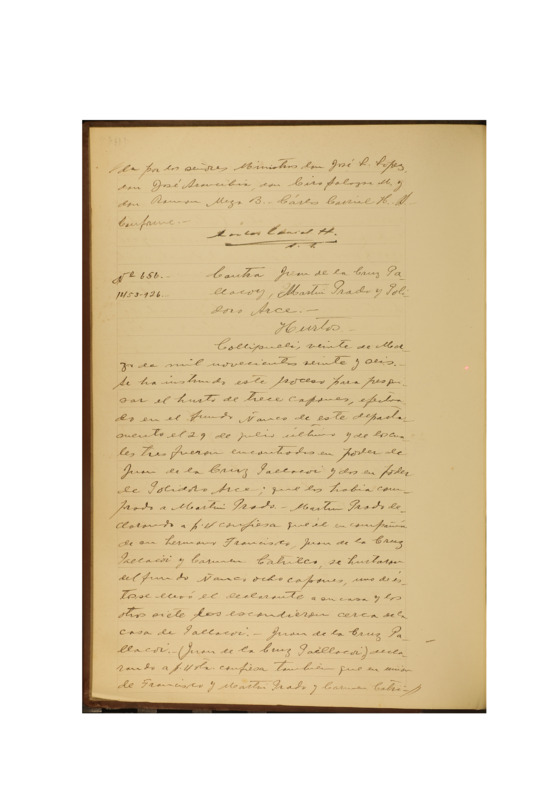 da por los señores Ministros don José L. López,
don José Arancibia, don Ciro Salazar M. y
don Ramon Meza B. Cárlos Cadiel H. S
Conforme.-
Cárlos Cadiel H.
s. t.
Nº 656.- Contra Juan de la Cruz Pa-
llacoy, Martin Prado y Poli-
doro Arce.-
Hurtos.-
Collipulli, veinte de Mar-
zo de mil novecientos veinte y seis.-
Se ha instruido este proceso para pesqui-
sar el hurto de trece capones, efectua-
do en el fundo Ñanco de este departa-
mento el 29 de julio último y de los cua-
les tres fueron encontrados en poder de
Juan de la Cruz Paillacoi y dos en poder
de Polidoro Arce; que los habia com-
prado a Martin Prado.- Martin Prado de-
clarando a f. confiesa que el en compañia
de su hermano Francisco, Juan de la Cruz
Paillacoi y Carmen Catrileo, se hurtaron
del fundo Ñanco ocho capones, uno de és-
tos se llevó el declarante a su casa y los
otros siete los escondieron cerca de la
casa de Paillacoi.- Juan de la Cruz Pa-
llacoi.- (Juan de la Cruz Paillacoi) decla-
rando a f. confiesa tambien que en union
de Francisco y Martin Prado y Carmen Catri-